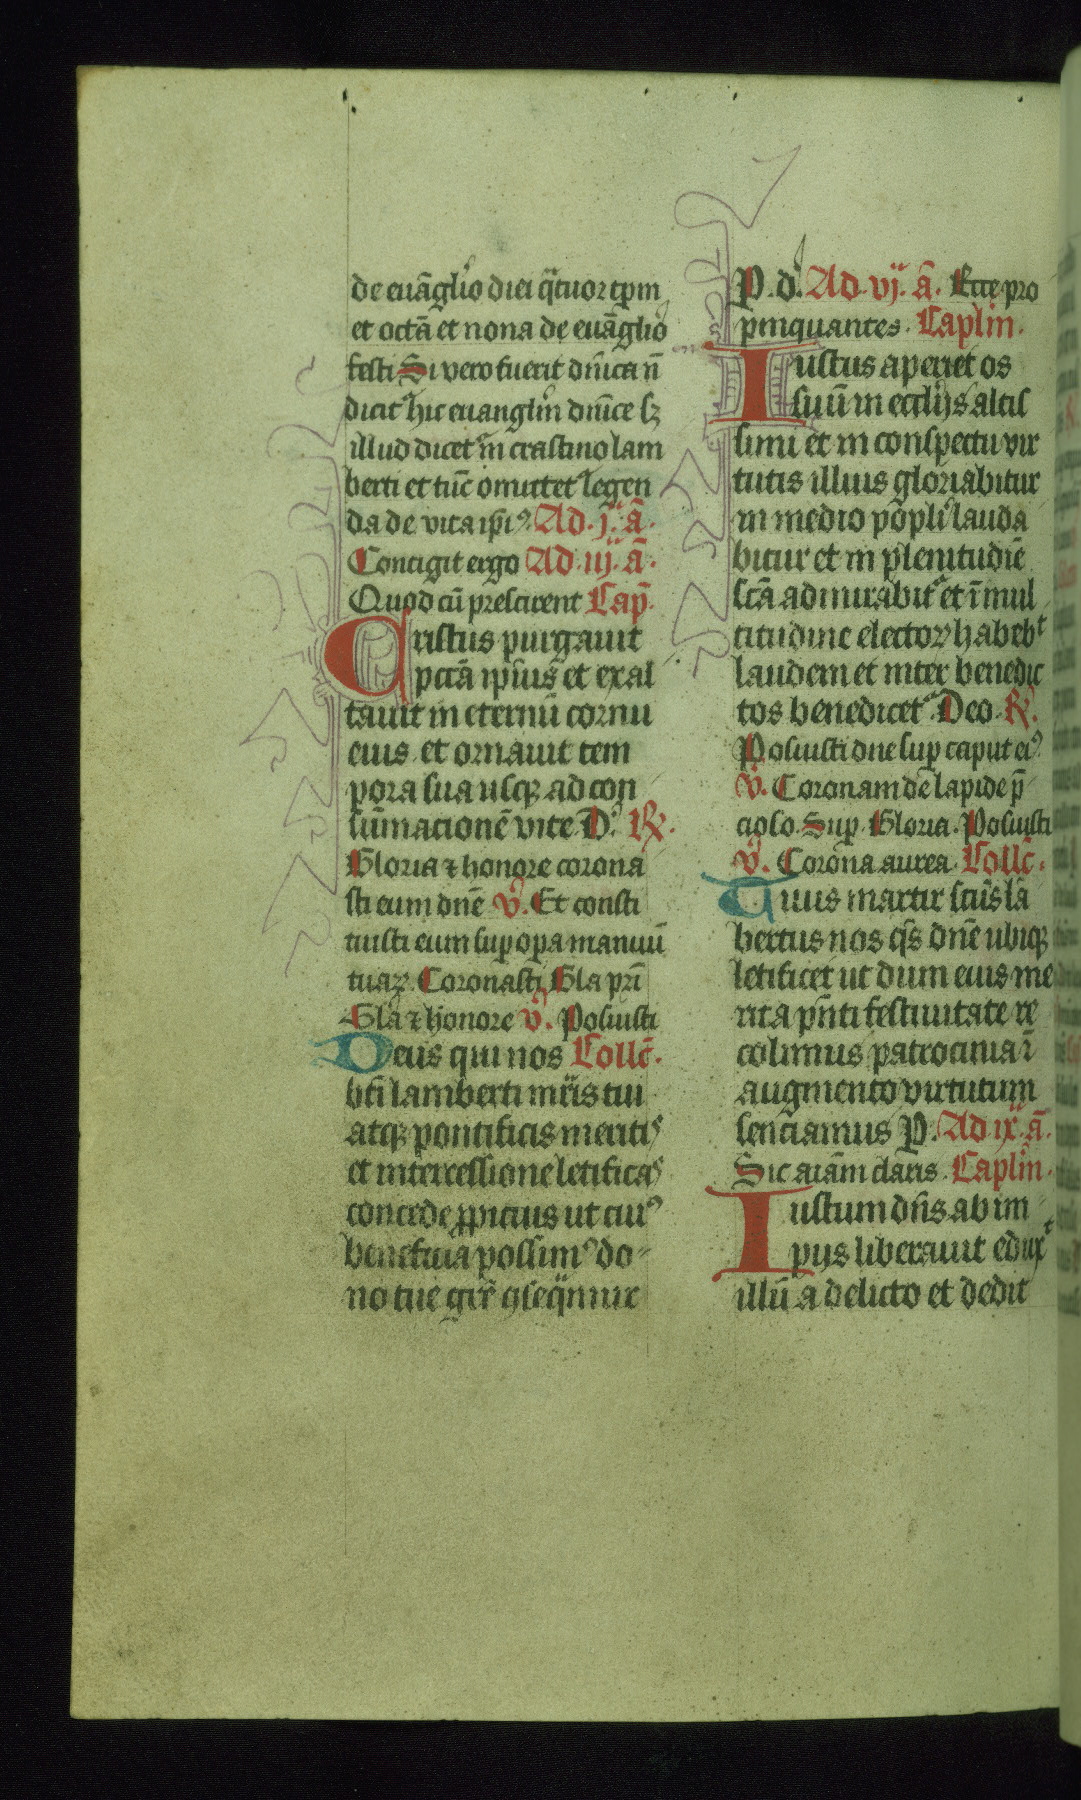 de euāglio diei q̈tuor tꝑm
et octā et nona de euāglio
festi Si vero fuerit dn̄ica n̄
dicit᷑ hic euangliū dn̄ice sꝫ
illud dicet᷑ in crastino lam
berti et tūc omittet᷑ legen
da de vita ip̄iꝰ Ad .j. ā.
Contigit ergo Ad .iij. ā.
Quod cū prescirent Cap̄.
Cristus purgauit
pctā ipsius et exal
tauit in eternū cornu
eius et ornauit tem
pora sua usqꝫ ad con
sūmacionē vite D. R̷.
Gloria ⁊ honore corona
sti eum dn̄e v̊. Et consti
tuisti eum suꝑ oꝑa manuū
tuaꝝ Coronasti Gla pr̄i
Gla ⁊ honore v̊. Posuisti
Deus qui nos Collc̄.
bt̄i lamberti mr̄is tui
atqꝫ pontificis meritꝭ
et intercessione letificas
concede ꝓpicius ut cuiꝰ
beneficia possimꝰ do
no tue gr̄e ꝯseq̈mur
P. d. Ad .vj. ā. Ecce pro
pinquantes. Caplm̄.
Iustus aperiet os
suū in eccl̄ijs altis
simi et in conspectu vir
tutis illius gloriabitur
in medio popl̄i lauda
bitur et in plenitudiē
scā admirabit᷑ et ī mul
titudine electoꝝ habebᵗ
laudem et inter benedic
tos benedicet᷑ Deo R̷.
Posuisti dn̄e suꝑ caput eiꝰ
v̊. Coronam de lapide p̄
cioso Suꝑ. Gloria. Posuisti
v̊. Corona aurea. Collc̄.
Tuus martir sctūs la
bertus nos qs̄ dn̄e ubiqꝫ
letificet ut dum eius me
rita pn̄ti festiuitate re
colimus patrocinia ī
augmento virtutum
senciamus P. Ad ix ā.
Sic aīam claris. Caplm̄.
Iustum dn̄s ab im
pijs liberauit eduxᵗ
illū a delicto et dedit